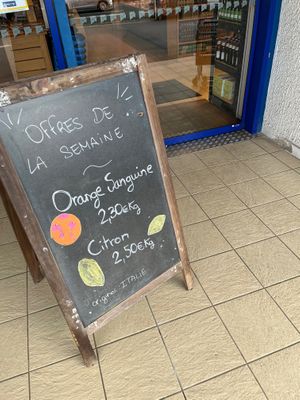 OFFRES DE
LA SEMAINE
Orange Sanguine
2,30€Kg
Citron
2,50€Kg
Origine: ITALIE